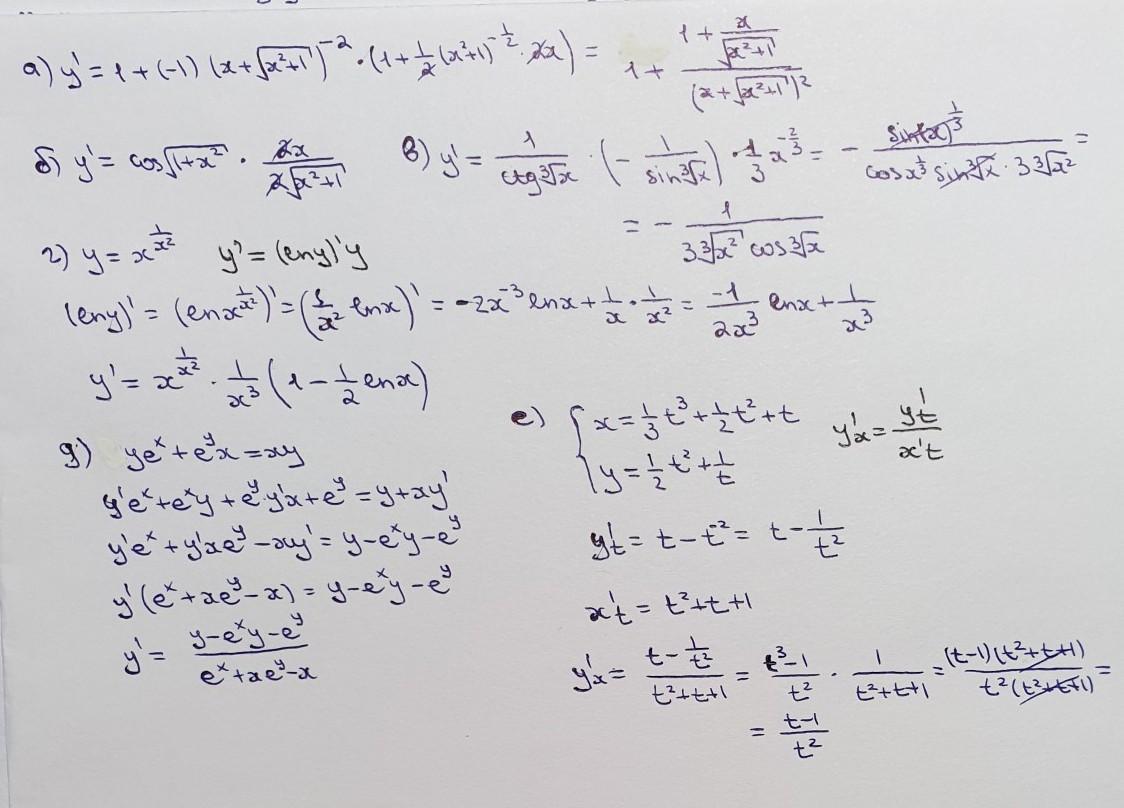 а) y' = 1 + (-1) (x+√(x²+1))⁻² · (1 + 1/2 (x²+1)^(-1/2) · 2x) = 1 + (1 + x/√(x²+1))/(x+√(x²+1))²
б) y' = cos√(1+x²) · 2x/(2√(x²+1))
в) y' = 1/(ctg ∛x) · (- 1/(sin ∛x)) · 1/3 x^(-2/3) = - (sin(x)^(1/3))/(cos x^(1/3) sin ∛x · 3∛x²) =
= - 1/(3∛x² cos ∛x)
г) y = x^(1/x²) y' = (lny)'y
(lny)' = (lnx^(1/x²))' = (1/x² lnx)' = -2x⁻³ lnx + 1/x · 1/x² = -1/(2x³) lnx + 1/x³
y' = x^(1/x²) · 1/x³ (1 - 1/2 lnx)
д) yeˣ + eʸx = xy
y'eˣ + eˣy + eʸ·y'x + eʸ = y + xy'
y'eˣ + y'xeʸ - xy' = y - eˣy - eʸ
y'(eˣ + xeʸ - x) = y - eˣy - eʸ
y' = (y - eˣy - eʸ)/(eˣ + xeʸ - x)
е) { x = 1/3 t³ + 1/2 t² + t
y = 1/2 t² + 1/t
y'x = y't/x't
y't = t - t⁻² = t - 1/t²
x't = t² + t + 1
y'x = (t - 1/t²)/(t²+t+1) = (t³-1)/t² · 1/(t²+t+1) = (t-1)(t²+t+1)/(t²(t²+t+1)) =
= (t-1)/t²